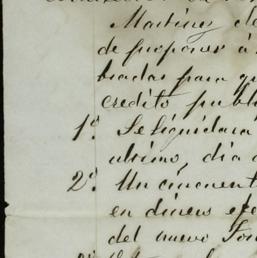 Martinez de
de proponer á
biadas para que
credito publi
1º Se liquidará
ultimo, dia
2º Un cincuent
en dinero efe
del nuevo Fon